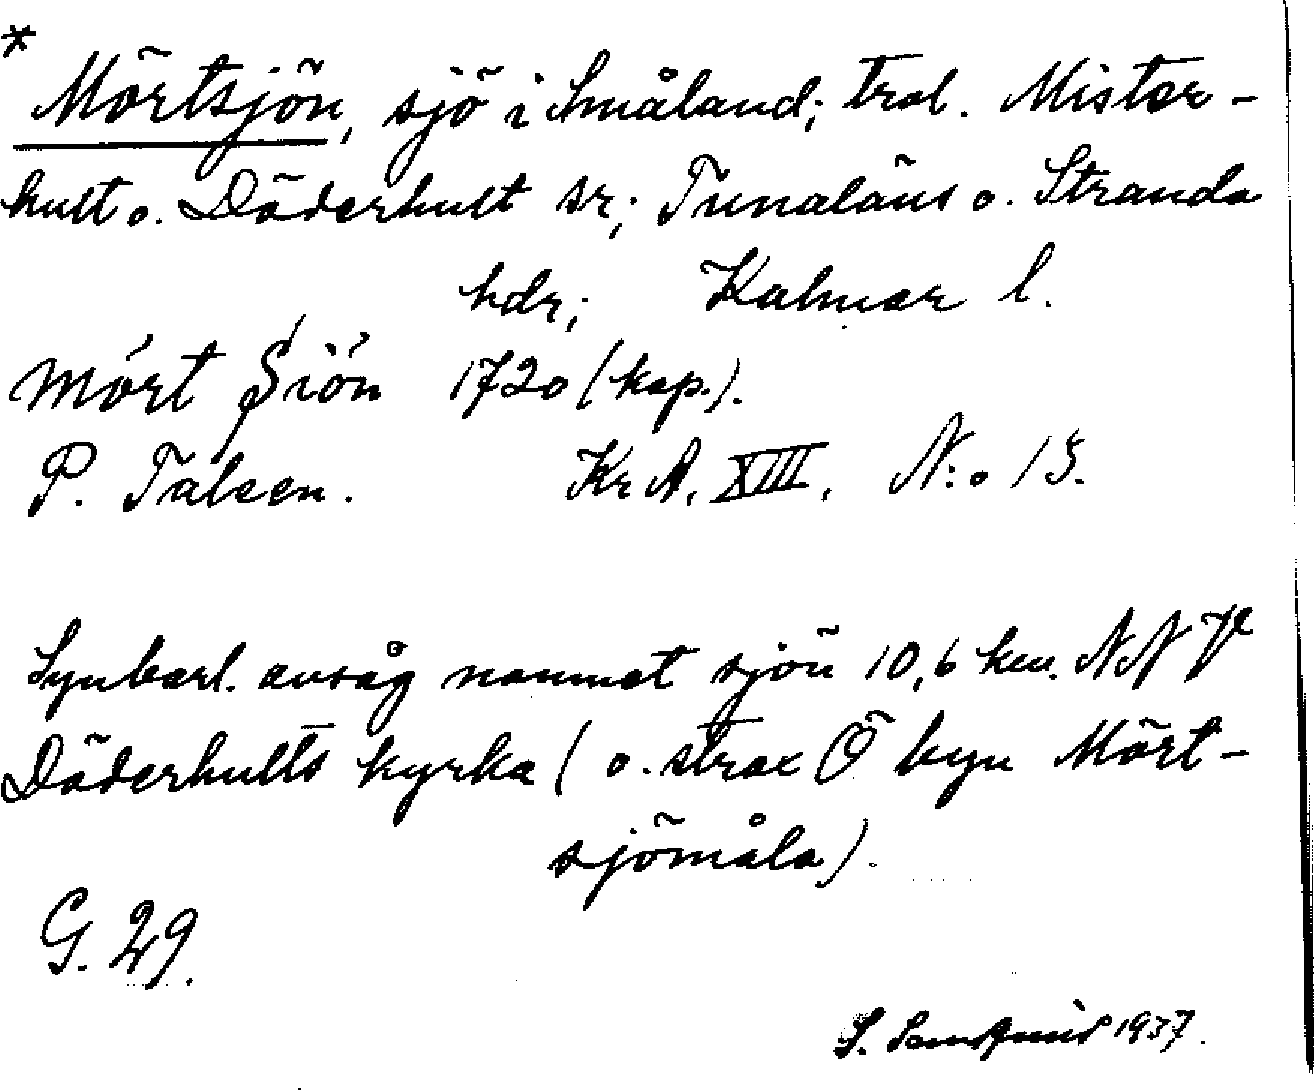 * Mörtsjön, sjö i Småland; trol. Mister-
hult o. Döderhult sr; Tunaläns o. Stranda
hdr; Kalmar l.
Mört Siön 1720 (kop.).
P. Talsen. Kr A. XIII, N:o 15.
Synbarl. avsåg namnet sjön 10,6 km. NNV
Döderhults kyrka (o. strax Ö byn Mört-
sjömåla).
G. 29.
S. 1937.